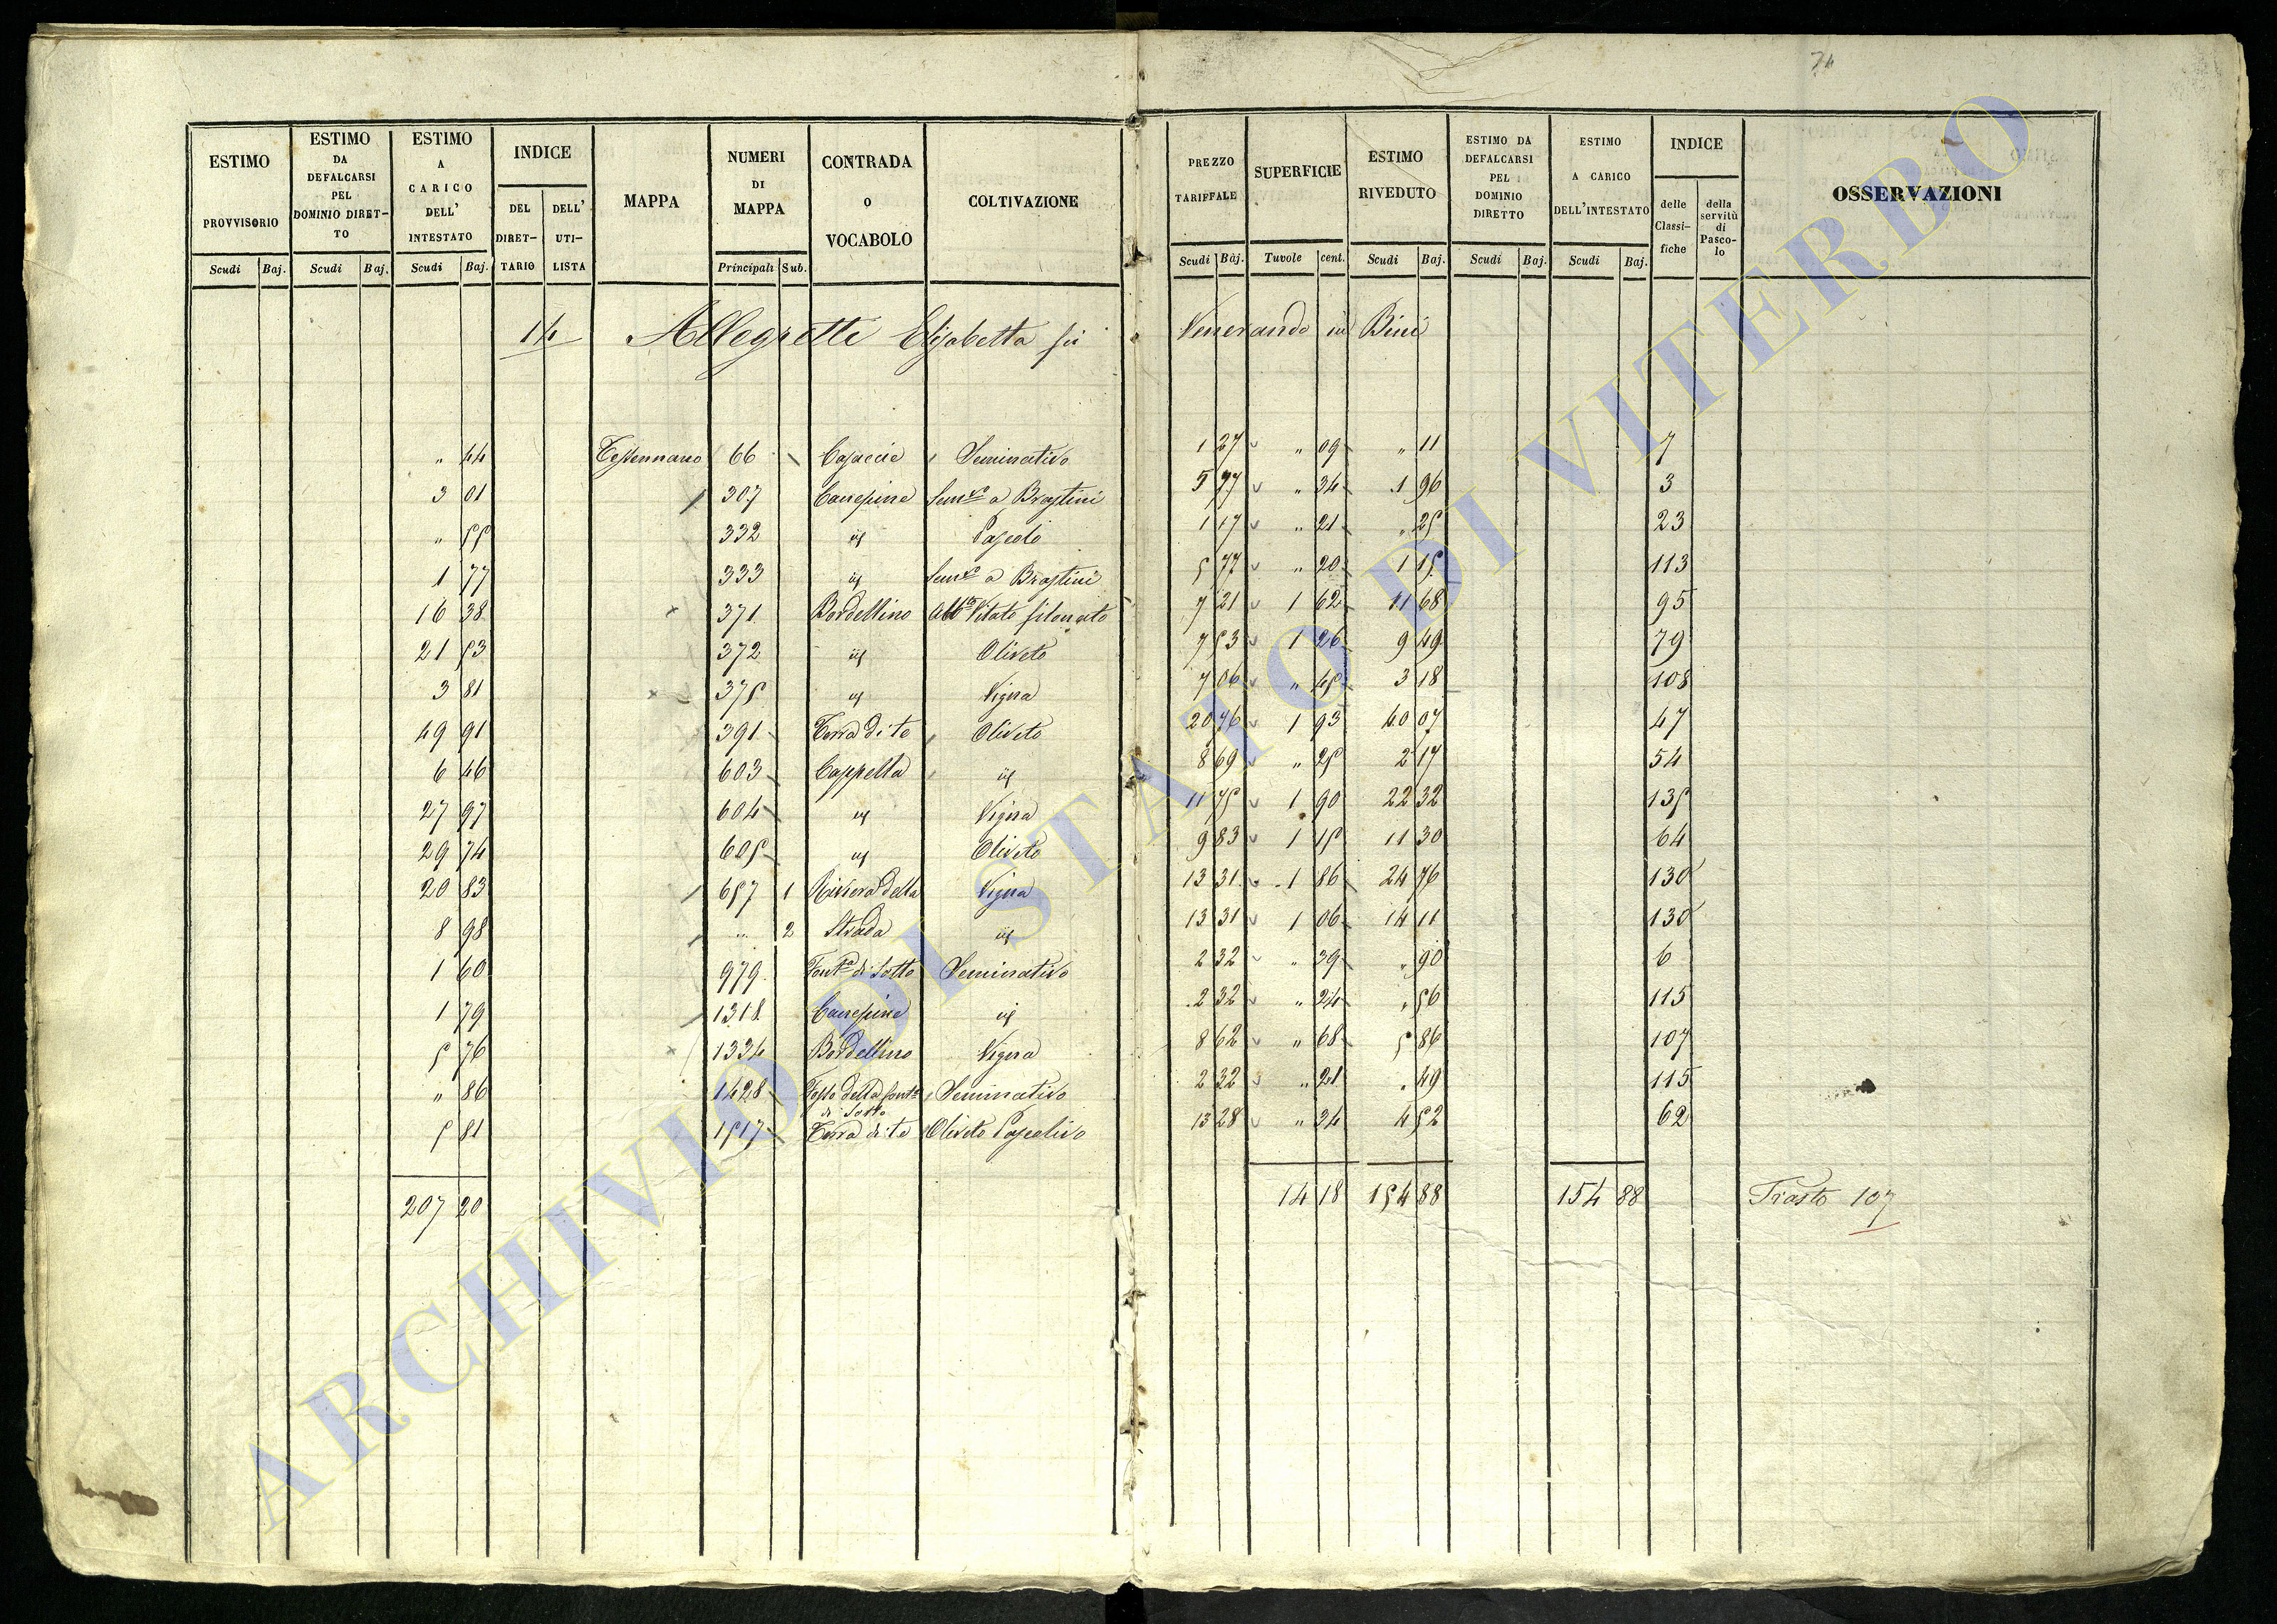 74
ESTIMO PROVVISORIO | ESTIMO DA DEFALCARSI PEL DOMINIO DIRETTO | ESTIMO A CARICO DELL' INTESTATO | INDICE | MAPPA | NUMERI DI MAPPA | CONTRADA O VOCABOLO | COLTIVAZIONE | PREZZO TARIFFALE | SUPERFICIE | ESTIMO RIVEDUTO | ESTIMO DA DEFALCARSI PEL DOMINIO DIRETTO | ESTIMO A CARICO DELL'INTESTATO | INDICE | OSSERVAZIONI
DEL DIRET-TARIO | DELL' UTI-LISTA | delle Classi-fiche | della servitù di Pasco-lo
Scudi | Baj. | Scudi | Baj. | Scudi | Baj. | Principali | Sub. | Scudi | Baj. | Tavole | cent. | Scudi | Baj. | Scudi | Baj. | Scudi | Baj.
14 Allegretti Elisabetta fù Venerando in Bini
" 44 Tessennano 66 Casaccie Seminativo 1 27 " 09 " 11 7
3 01 307 Canepine Semvo a Brastini 5 77 " 34 1 96 3
" 55 332 id Pascolo 1 17 " 21 " 25 23
1 77 333 id Semvo a Brastini 5 77 " 20 1 15 113
16 38 371 Bordellino Vitato filonato 7 21 1 62 11 68 95
21 53 372 id Oliveto 7 53 1 26 9 49 79
3 81 375 id Vigna 7 06 " 45 3 18 108
49 91 391 Terra di te Oliveto 20 76 1 93 40 07 47
6 46 603 Cappella id 8 69 " 25 2 17 54
27 97 604 id Vigna 11 75 1 90 22 32 135
29 74 605 id Oliveto 9 83 1 15 11 30 64
20 83 657 1 Riviera della Vigna 13 31 1 86 24 76 130
8 98 " 2 Strada id 13 31 1 06 14 11 130
1 60 979 Fonta di Sotto Seminativo 2 32 " 39 " 90 6
1 79 1318 Canepine id 2 32 " 24 " 56 115
5 76 1334 Bordellino Vigna 8 62 " 68 5 86 107
" 86 1428 Fosso della Fonta di Sotto Seminativo 2 32 " 21 " 49 115
5 81 1517 Terra di te Oliveto Pascolivo 13 28 " 34 4 52 62
207 20 14 18 154 88 154 88 Trasto 107
ARCHIVIO DI STATO DI VITERBO